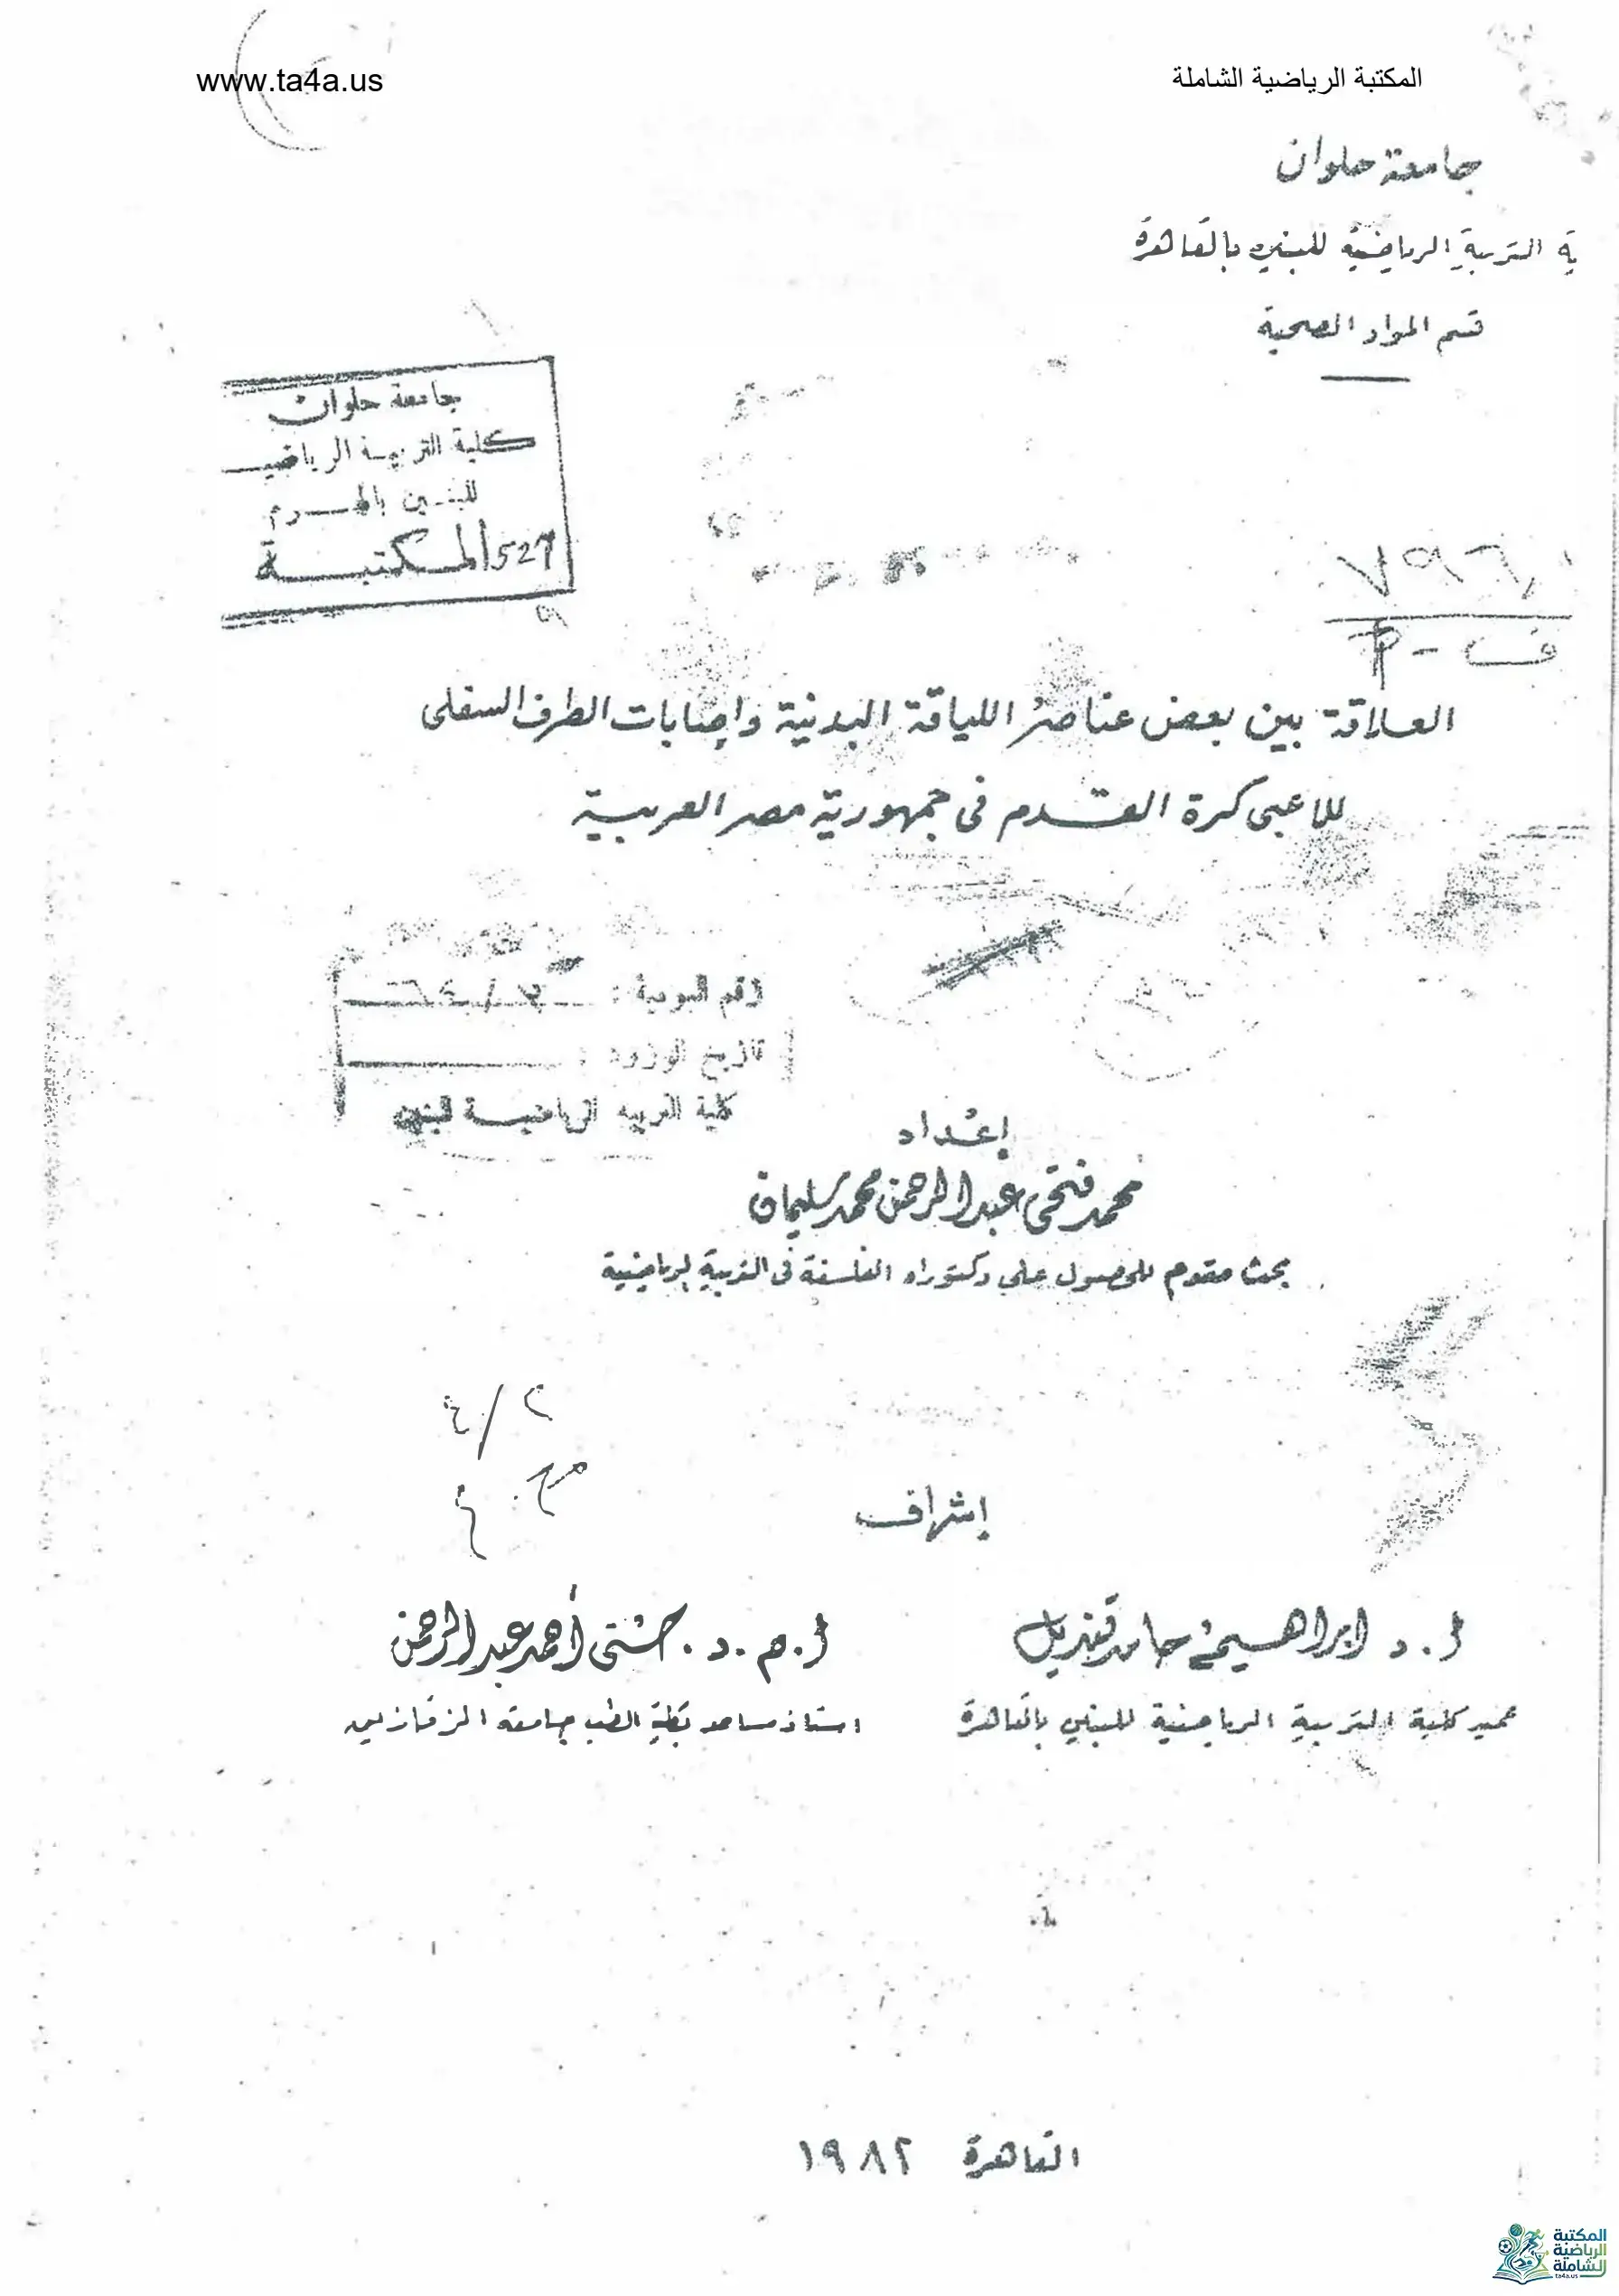 المكتبة الرياضية الشاملة
www.ta4a.us
جامعة حلوان
ية التربية الرياضية للبنين بالقاهرة
قسم المواد الصحية
جامعة حلوان
كلية التربية الرياضيـ
للبنين بالهرم
المكتبة 527
٧٩٦٫
ف - م
العلاقة بين بعض عناصر اللياقة البدنية وإصابات الطرف السفلى
للاعبى كرة القدم فى جمهورية مصر العربية
رقم اليومية :
تاريخ الورود :
كلية التربية الرياضية للبنين
إعداد
محمد فتحى عبد الرحمن محمد سليمان
بحث مقدم للحصول على دكتوراه الفلسفة فى التربية الرياضية
٤/٢
إشراف
ا . د ابراهيم حامد قنديل
عميد كلية التربية الرياضية للبنين بالقاهرة
ا . م . د . حسنى أحمد عبد الرحمن
استاذ مساعد بكلية الطب جامعة الزقازيق
القاهرة ١٩٨٢
المكتبة
الرياضية
الشاملة
ta4a.us